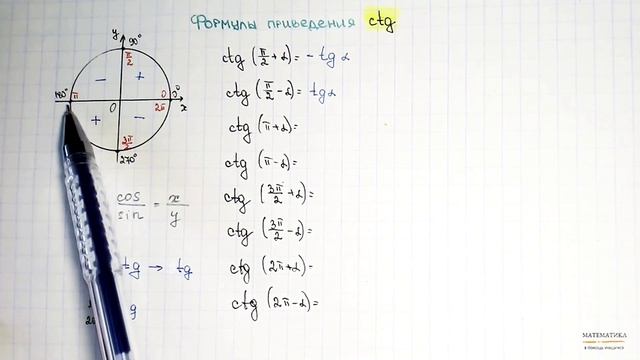 Формулы приведения ctg
y 90°
π/2
− +
180° π 0 0°
0 2π x
+ −
3π/2
270°
cos/sin = x/y
tg → tg
g
ctg (π/2 + α) = − tg α
ctg (π/2 − α) = tg α
ctg (π + α) =
ctg (π − α) =
ctg (3π/2 + α) =
ctg (3π/2 − α) =
ctg (2π + α) =
ctg (2π − α) =
МАТЕМАТИКА
В ПОМОЩЬ УЧАЩИМСЯ